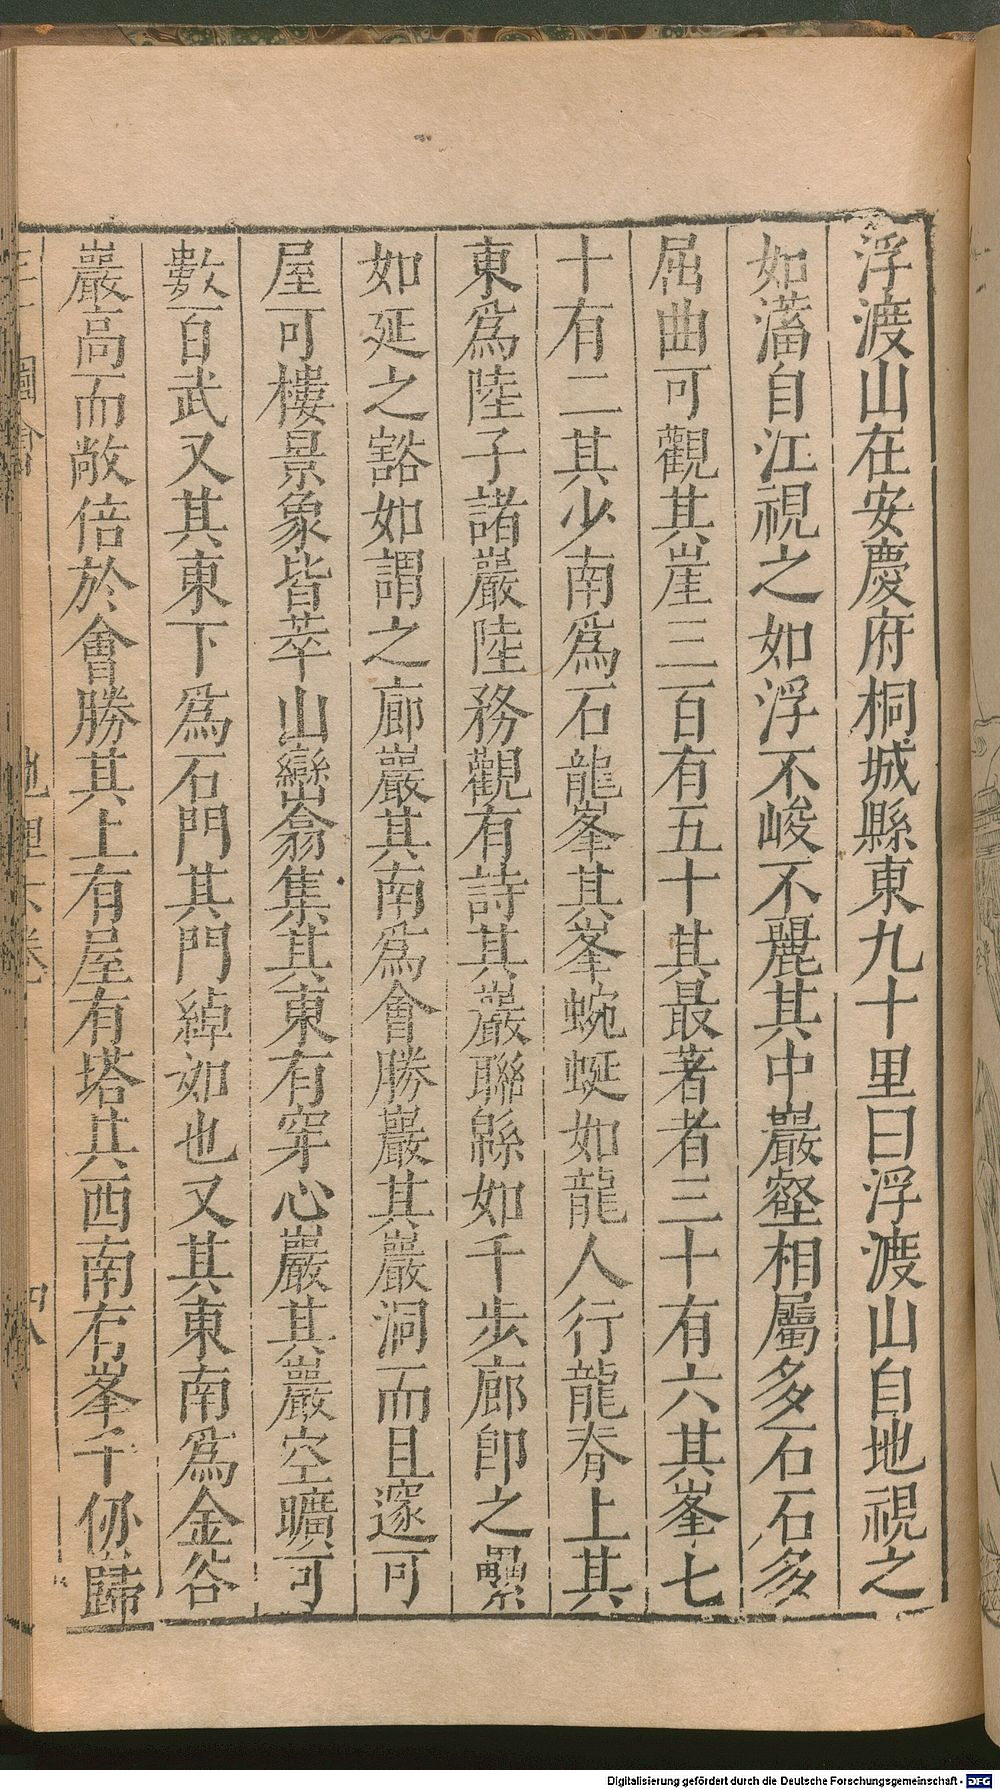 浮渡山在安慶府桐城縣東九十里曰浮渡山自地視之
如瀋自江視之如浮不峻不麗其中巖壑相屬多石石多
屈曲可觀其崖三百有五十其最著者三十有六其峯七
十有二其少南爲石龍峯其峯蜿蜒如龍人行龍脊上其
東爲陸子諸巖陸務觀有詩其巖聯緜如千步廊卽之纍
如延之豁如謂之廊巖其南爲會勝巖其巖洞而且邃可
屋可樓景象皆萃山巒翕集其東有穿心巖其巖空曠可
數百武又其東下爲石門其門綽如也又其東南爲金谷
巖高而敞倍於會勝其上有屋有塔其西南有峯千仞歸
圖會 地理六卷 四八
Digitalisierung gefördert durch die Deutsche Forschungsgemeinschaft - DFG